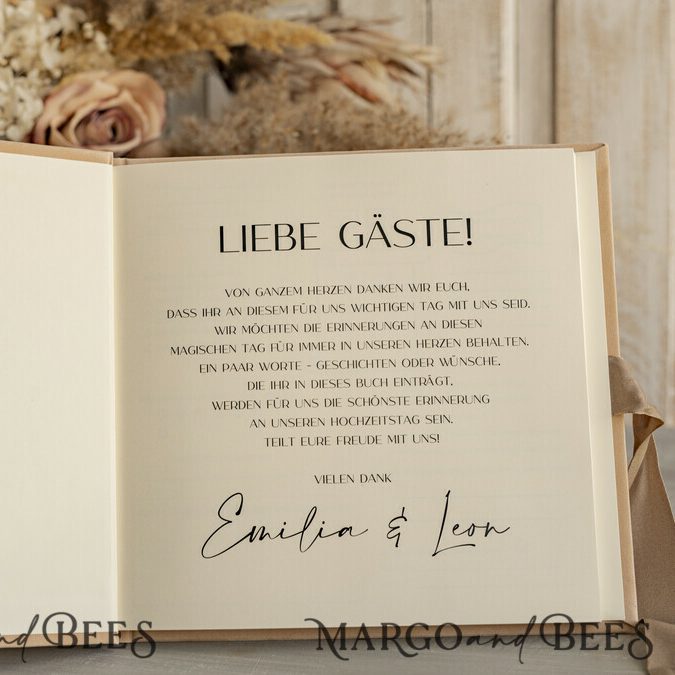 LIEBE GÄSTE!
VON GANZEM HERZEN DANKEN WIR EUCH,
DASS IHR AN DIESEM FÜR UNS WICHTIGEN TAG MIT UNS SEID.
WIR MÖCHTEN DIE ERINNERUNGEN AN DIESEN
MAGISCHEN TAG FÜR IMMER IN UNSEREN HERZEN BEHALTEN.
EIN PAAR WORTE - GESCHICHTEN ODER WÜNSCHE,
DIE IHR IN DIESES BUCH EINTRÄGT,
WERDEN FÜR UNS DIE SCHÖNSTE ERINNERUNG
AN UNSEREN HOCHZEITSTAG SEIN.
TEILT EURE FREUDE MIT UNS!
VIELEN DANK
Emilia & Leon
and BEES
MARGO and BEES